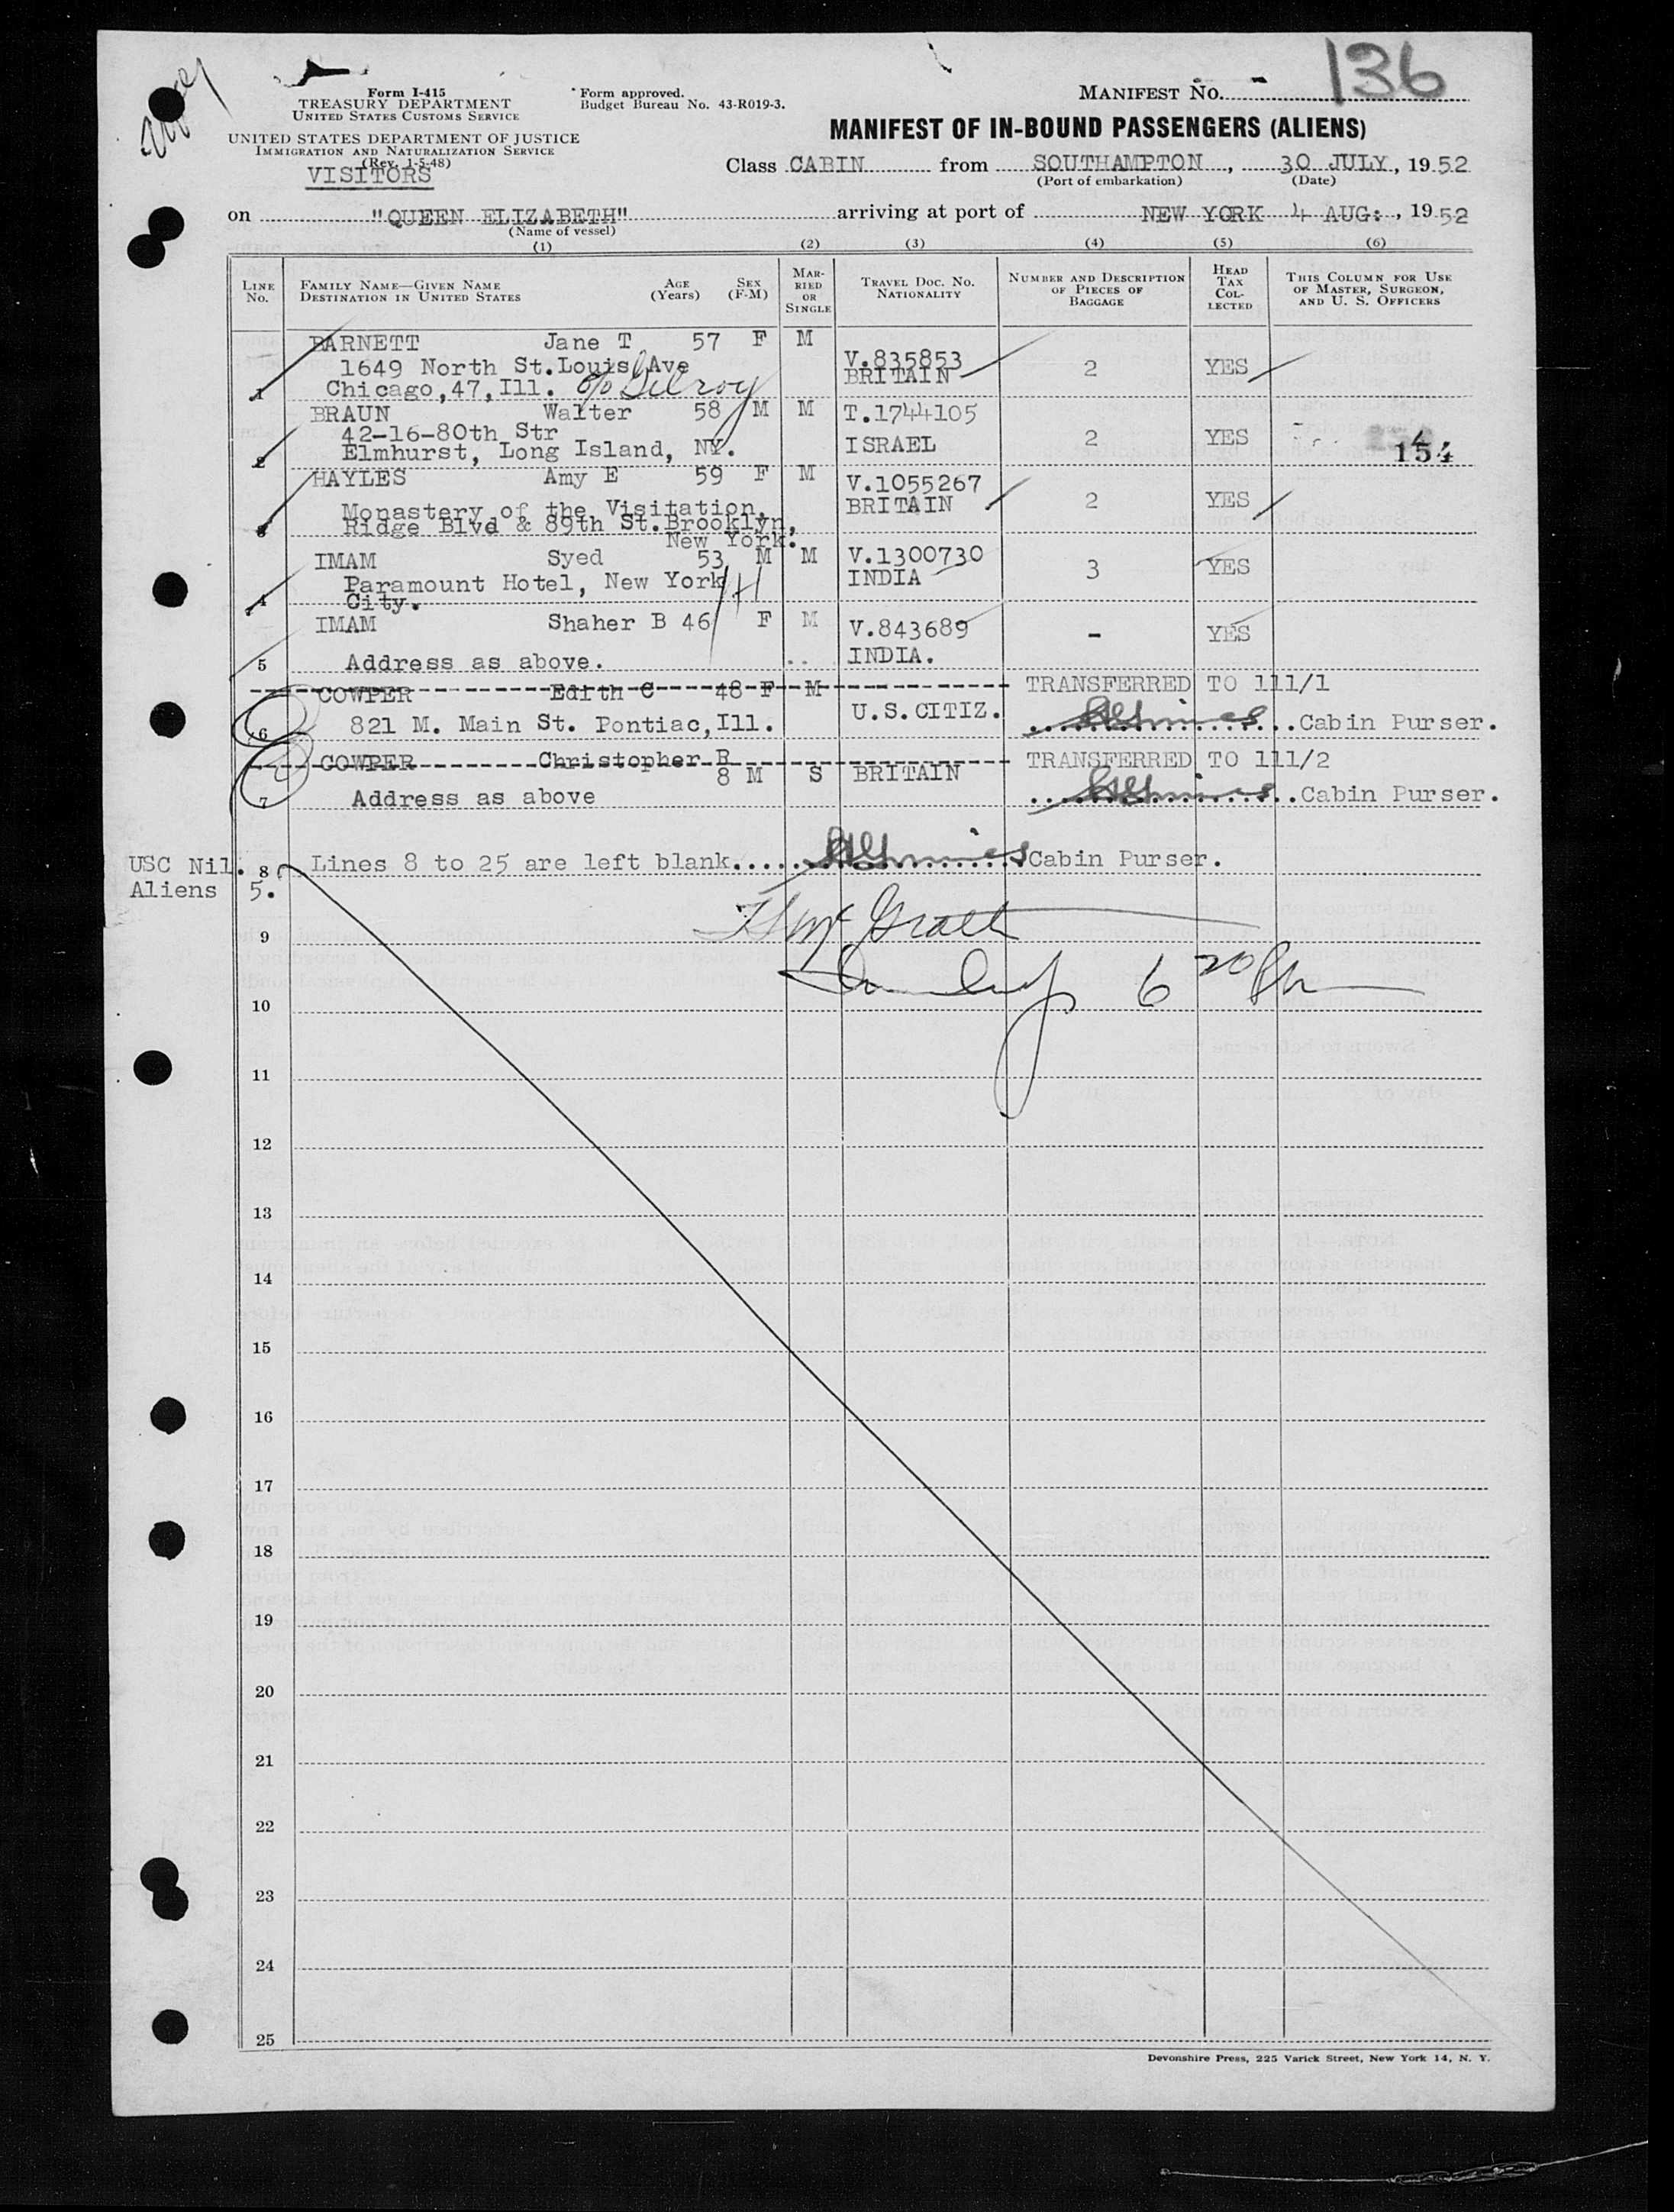 136
Form I-415
TREASURY DEPARTMENT
UNITED STATES CUSTOMS SERVICE
UNITED STATES DEPARTMENT OF JUSTICE
IMMIGRATION AND NATURALIZATION SERVICE
(Rev. 1-5-48)
VISITORS
Form approved.
Budget Bureau No. 43-R019-3.
MANIFEST No.
MANIFEST OF IN-BOUND PASSENGERS (ALIENS)
Class CABIN from SOUTHAMPTON, 30 JULY, 1952
(Port of embarkation) (Date)
on "QUEEN ELIZABETH" arriving at port of NEW YORK 4 AUG:, 1952
(Name of vessel)
(1) (2) (3) (4) (5) (6)
LINE No. FAMILY NAME—GIVEN NAME DESTINATION IN UNITED STATES AGE (Years) SEX (F-M) MARRIED OR SINGLE TRAVEL DOC. NO. NATIONALITY NUMBER AND DESCRIPTION OF PIECES OF BAGGAGE HEAD TAX COLLECTED THIS COLUMN FOR USE OF MASTER, SURGEON, AND U. S. OFFICERS
BARNETT Jane T 57 F M
1649 North St.Louis Ave V.835853 2 YES
1 Chicago,47,Ill. c/o Gilroy BRITAIN
BRAUN Walter 58 M M T.1744105
42-16-80th Str 2 YES 154
2 Elmhurst, Long Island, NY. ISRAEL
HAYLES Amy E 59 F M V.1055267
Monastery of the Visitation, BRITAIN 2 YES
3 Ridge Blvd & 89th St.Brooklyn,
New York.
IMAM Syed 53 M M V.1300730
Paramount Hotel, New York INDIA 3 YES
4 City.
IMAM Shaher B 46 F M V.843689 - YES
5 Address as above. INDIA.
COWPER Edith C 48 F M TRANSFERRED TO 111/1
6 821 M. Main St. Pontiac,Ill. U.S.CITIZ. Cabin Purser.
COWPER Christopher R TRANSFERRED TO 111/2
8 M S BRITAIN
7 Address as above Cabin Purser.
USC Nil. 8 Lines 8 to 25 are left blank. Cabin Purser.
Aliens 5.
9
10 6 20 Pm
11
12
13
14
15
16
17
18
19
20
21
22
23
24
25
Devonshire Press, 225 Varick Street, New York 14, N. Y.